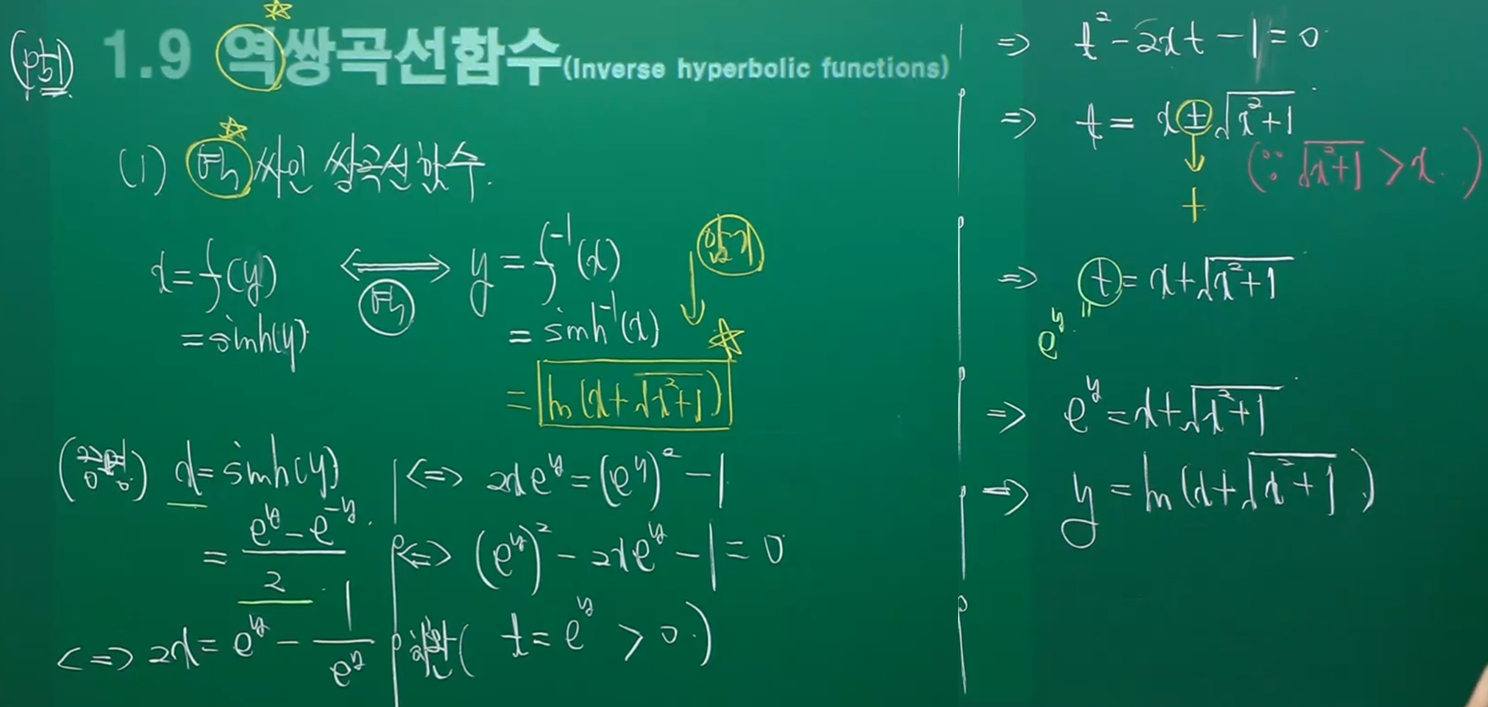 (P51) 1.9 역쌍곡선함수(Inverse hyperbolic functions)
(1) 역 싸인 쌍곡선함수.
x = f(y) ⟺ y = f⁻¹(x)
역
= sinh(y) = sinh⁻¹(x)
암기
= ln(x+√(x²+1))
x = sinh(y)
= (e^y − e^−y)/2
<=> 2x = e^y − 1/e^y
<=> 2xe^y = (e^y)² − 1
<=> (e^y)² − 2xe^y − 1 = 0
치환( t = e^y > 0.)
=> t² − 2xt − 1 = 0
=> t = x ± √(x²+1)
(∵ √(x²+1) > x.)
+
=> t = x+√(x²+1)
e^y "
=> e^y = x+√(x²+1)
=> y = ln(x+√(x²+1))